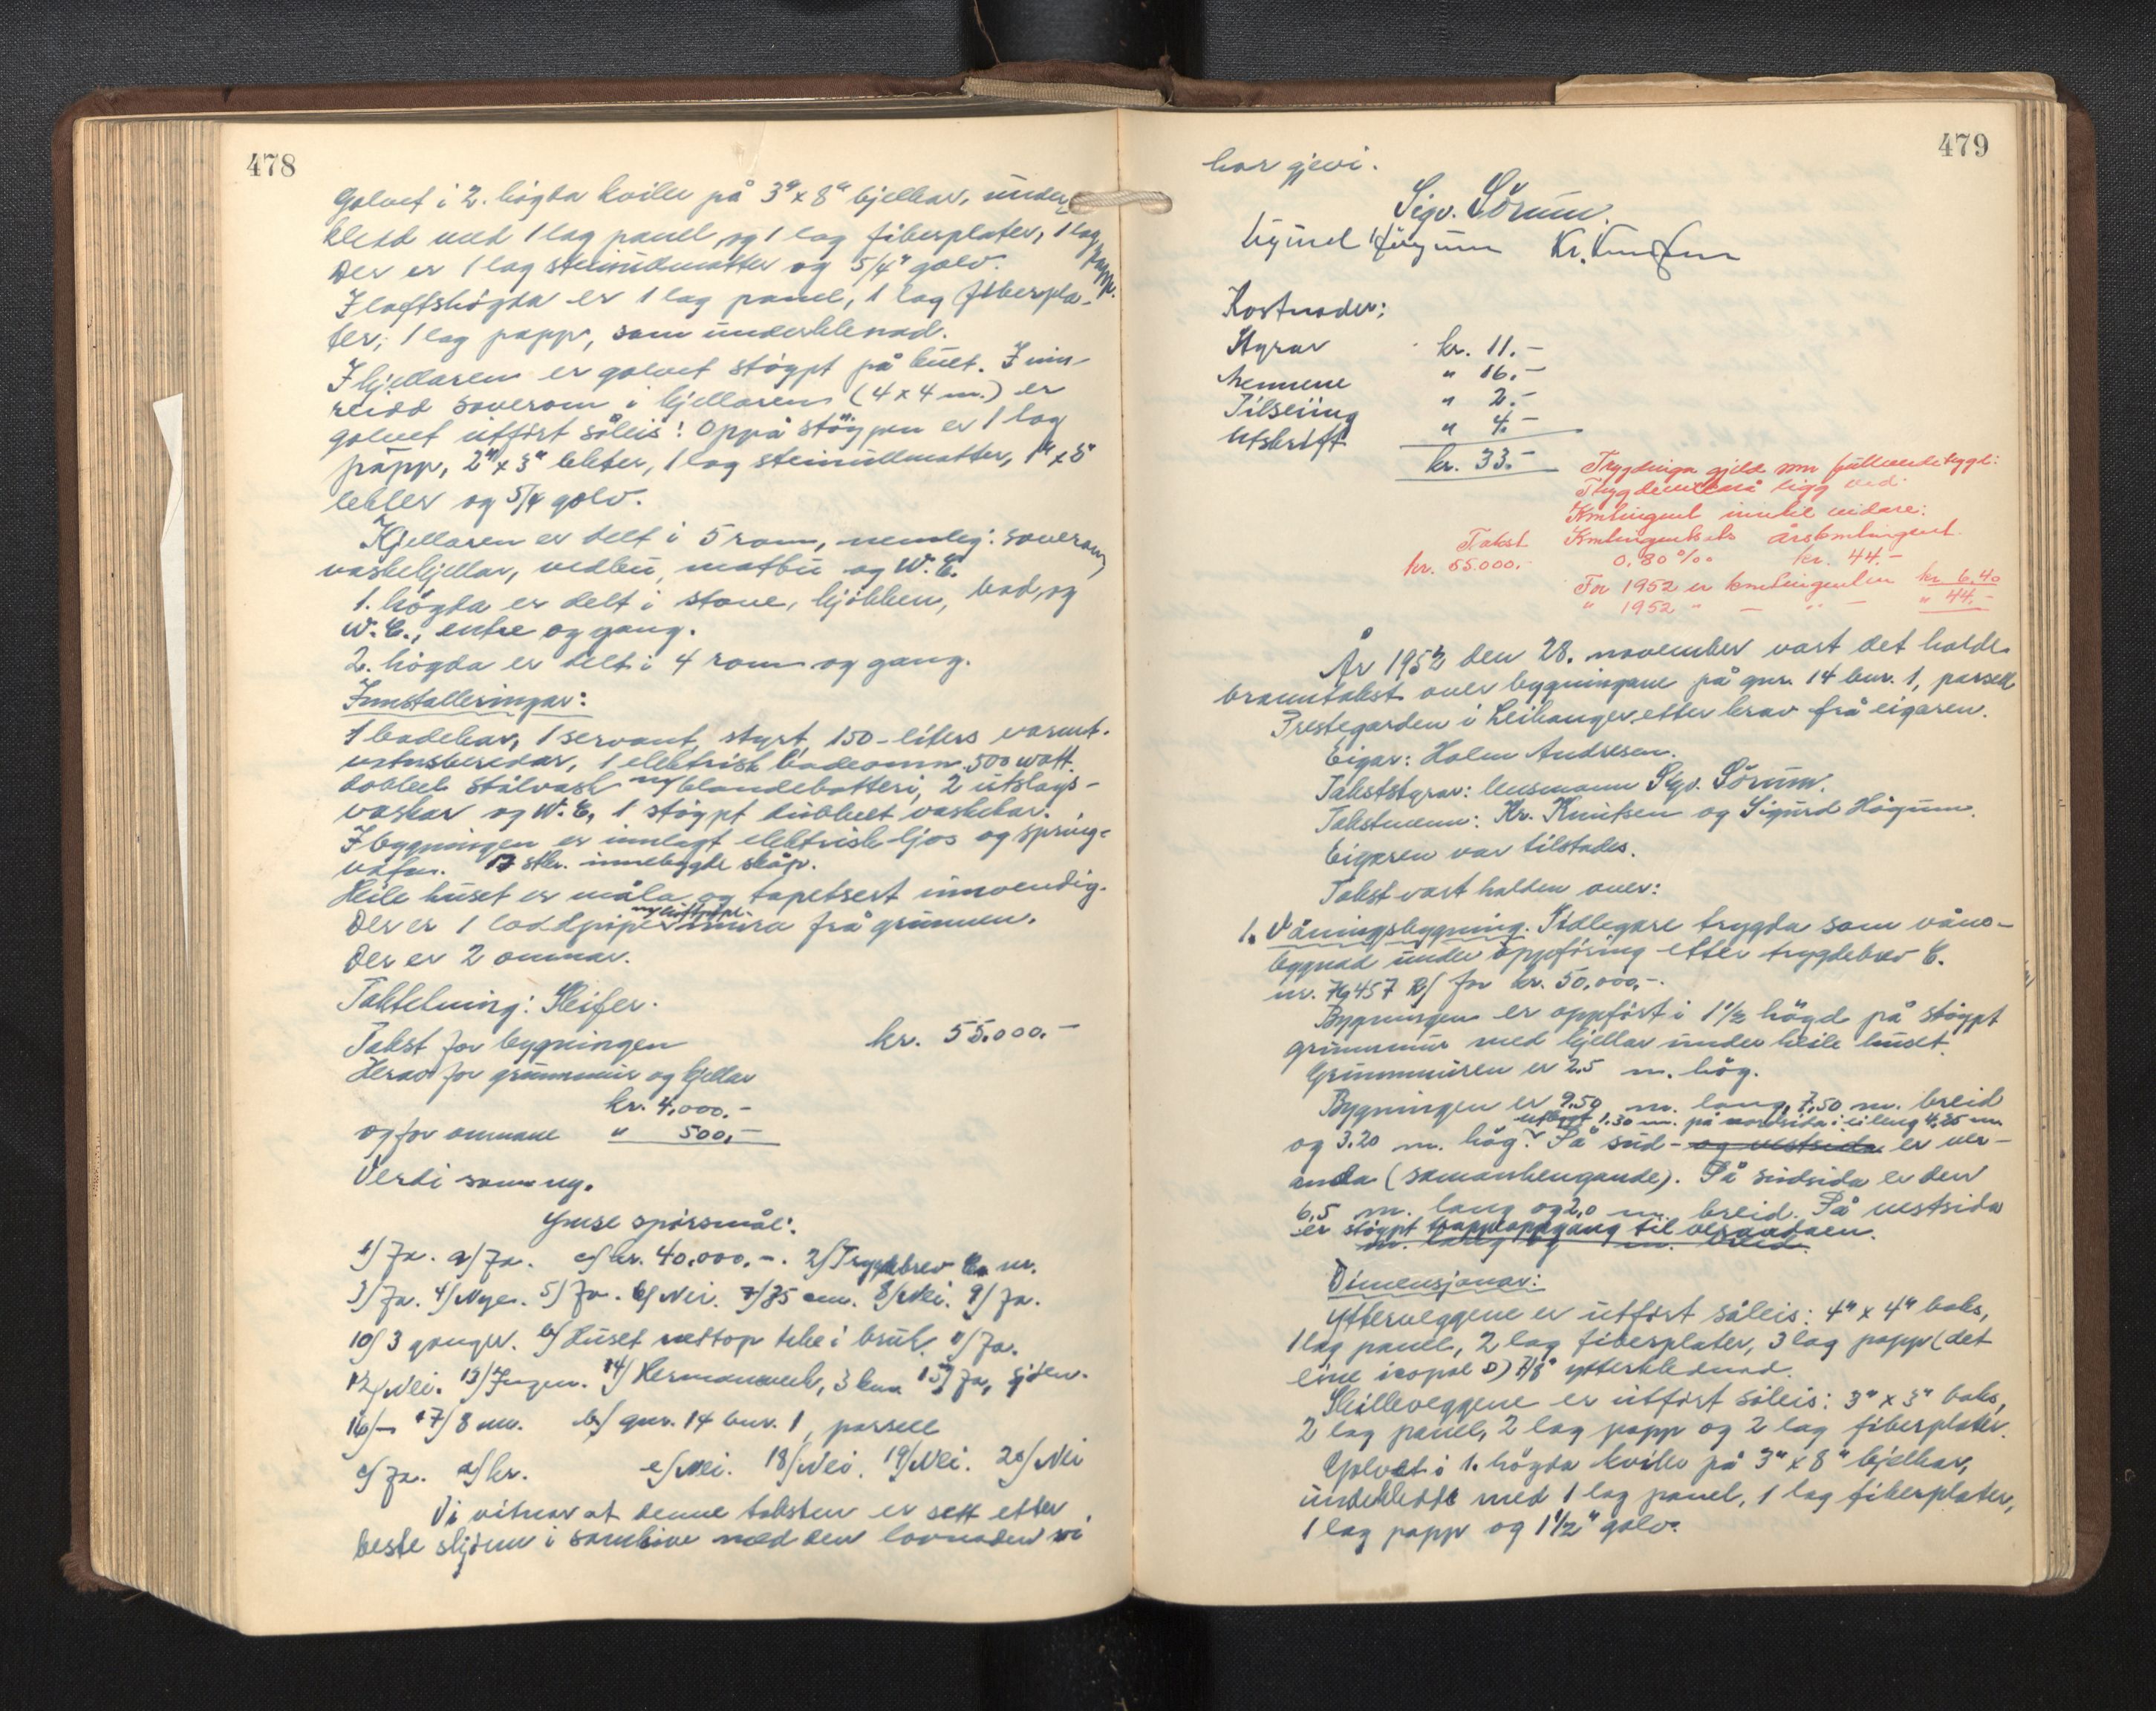 478
Golvet i 2. högda kviler på 3" x 8" bjelkar, under-
kledd med 1 lag panel og 1 lag fiberplater, 1 lag papp.
Der er 1 lag steinullmatter og 5/4" golv.
I loftshögda er 1 lag panel, 1 lag fiberpla-
ter, 1 lag papp, som underklenad.
I kjellaren er golvet stöypt på kult. I inn-
reidd soverom i kjellaren (4 x 4 m.) er
golvet utfört såleis: Oppå stöypen er 1 lag
papp, 2" x 3" lekter, 1 lag steinullmatter, 1" x 5"
lekter og 5/4 golv.
Kjellaren er delt i 5 rom, nemleg: soverom,
vaskekjellar, vedbu, matbu og W.C.
1. högda er delt i stove, kjökken, bad, og
W.C., entre og gang.
2. högda er delt i 4 rom og gang.
Innstalleringar:
1 badekar, 1 servant, styrt 150-liters varmt-
vatnsberedar, 1 elektrisk badeomn 500 watt.
dobbelt stålvask m/ blandebatteri, 2 utslags-
vaskar og W.C, 1 stöypt dubbelt vaskekar.
I bygningen er innlagt elektrisk ljos og spring-
vatn. 13 stkr. innebygde skåp.
Heile huset er måla og tapetsert innvendig.
Der er 1 loddpipe m/luftpipe mura frå grunnen.
Der er 2 omnar.
Taktekning: Skifer.
Takst for bygningen kr. 55.000.-
Herav for grunnmur og kjellar
kr. 4.000.-
og for omnane " 500,-
Verdi som ny.
Ymse spörsmål:
1/ Ja. a/ Ja. c/ kr. 40.000,-. 2/ Trygdebrev C. nr.
3/ Ja. 4/ Nye. 5/ Ja. 6/ Nei. 7/ 35 cm. 8/ Nei. 9/ Ja.
10/ 3 gonger. b/ Huset nettop teke i bruk. 11/ Ja.
12/ Nei. 13/ Ingen. 14/ Hermansverk, 3 km 15/ Ja, sjöen.
16/ - 17/ 8 m. b/ gnr. 14 bnr. 1, parsell
c/ Ja. d/ kr. e/ Nei. 18/ Nei. 19/ Nei. 20/ Nei
Vi vitnar at denne taksten er sett etter
beste skjönn i samhöve med den lovnaden vi
479
har gjevi.
Sigv. Sörum.
Sigurd Högum Kr. Knutsen
Kostnader:
Styrar kr. 11.-
Mennene " 16.-
Tilseiing " 2.-
Utskrift " 4.-
kr. 33.-
Trygdinga gjeld som fullverditrygd:
ligg ved.
Kontingent inntil vidare:
Takst Kontingentsats årskontingent.
kr. 55.000.- 0,80 ‰ kr. 44.-
For 1952 er kontingenten kr 6.40
" 1952 " - " - " 44.-
År 1952 den 28. november vart det halde
branntakst over bygningane på gnr. 14 bnr. 1, parsell
Prestegarden i Leikanger, etter krav frå eigaren.
Eigar: Holm Andresen.
Takststyrar: lensmann Sigv. Sörum.
Takstmenn: Kr. Knutsen og Sigurd Högum.
Eigaren var tilstades.
Takst vart halden over:
1. Våningsbygning. Tidlegare trygda som våno-
bygnad under oppföring etter trygdebrev C.
nr. 76457 B/ for kr. 50.000,-.
Bygningen er oppfört i 1 1/2 högd på stöypt
grunnmur med kjellar under heile huset.
Grunnmuren er 2.5 m. hög.
Bygningen er 9,50 m. lang, 7,50 m. breid
utbygt 1.30 m. på nordsida i ei leng 4,25 m
og 3.20 m. hög. På sud- og vestsida er ver-
anda (samanhengande). På sudsida er den
6,5 m. lang og 2,0 m. breid. På vestsida
er stöypt trappeoppgang til verandaen.
m. lang og m. breid.
Dimensjonar:
Ytterveggene er utfört såleis: 4" x 4" boks,
1 lag panel, 2 lag fiberplater, 3 lag papp (det
eine icopal D) 7/8" ytterklednad.
Skilleveggene er utfört såleis: 3" x 3" boks,
2 lag panel, 2 lag papp og 2 lag fiberplater.
Golvet i 1. högda kviler på 3" x 8" bjelkar,
underkledde med 1 lag panel, 1 lag fiberplater,
1 lag papp og 1 1/2" golv.